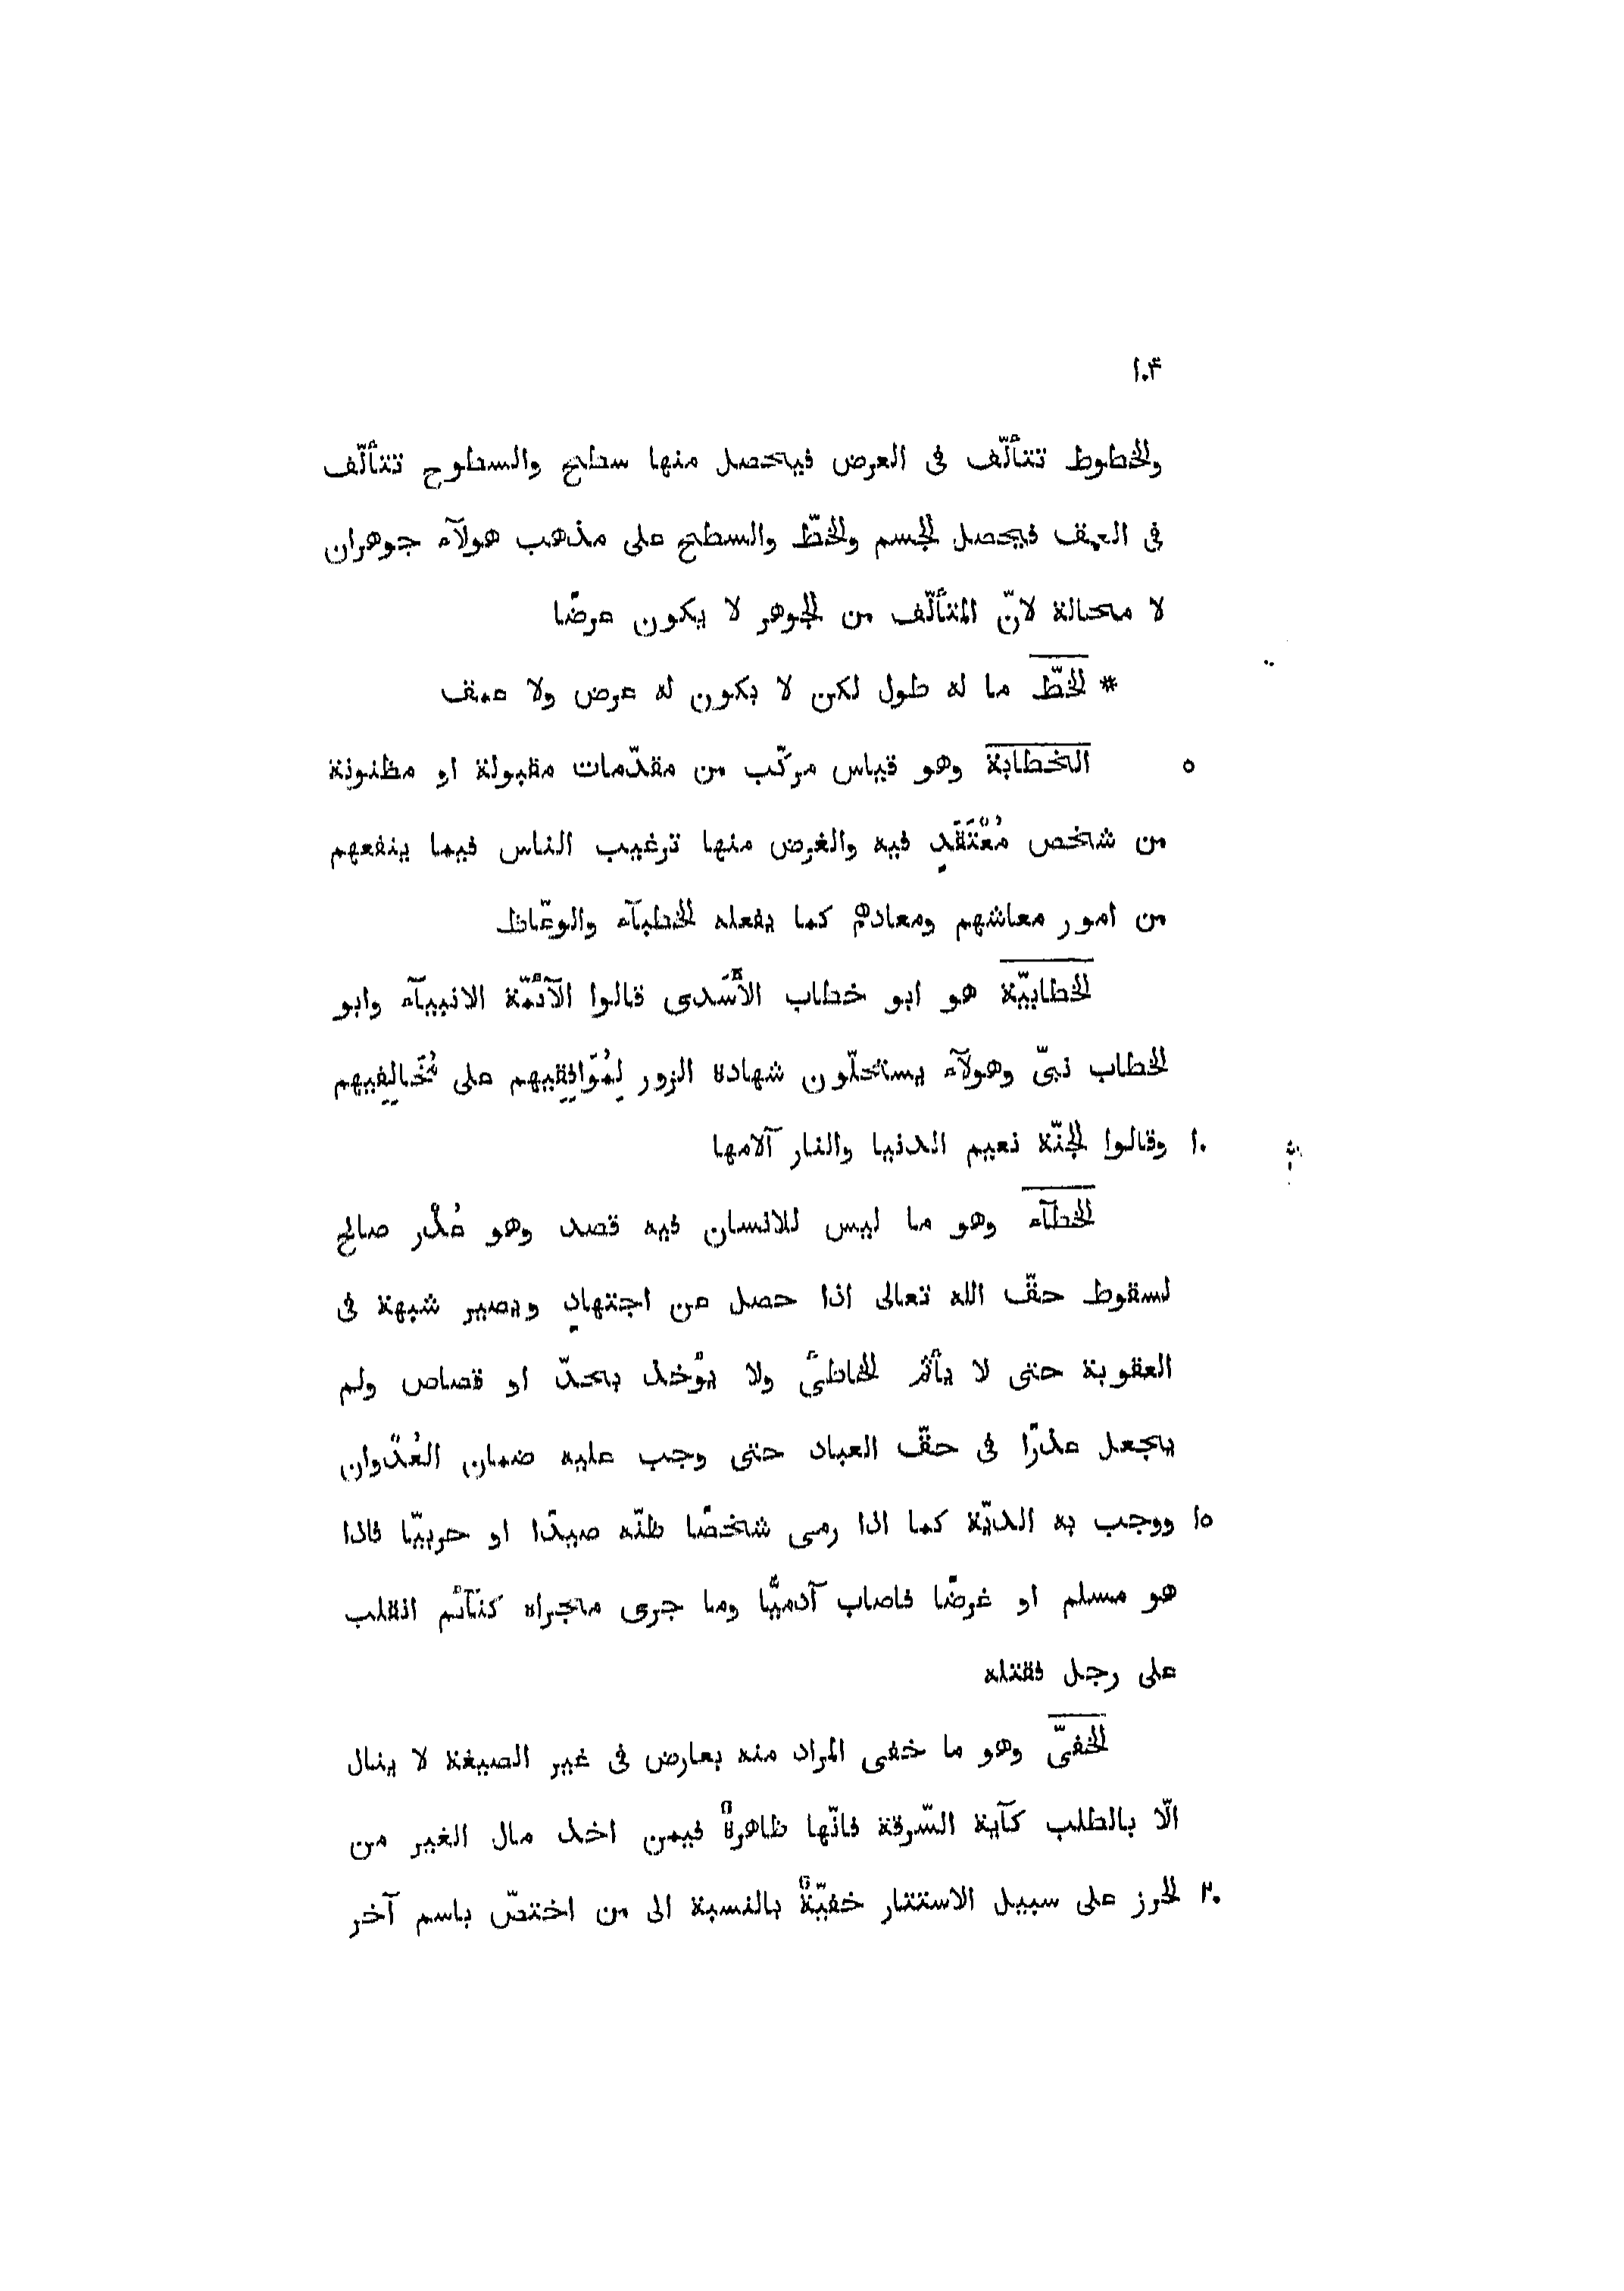 ١٠۴
والخطوط تتألّف فى العرض فيحصل منها سطح والسطوح تتألّف
فى العمق فيحصل الجسم والخطّ والسطح على مذهب هولآء جوهران
لا محالة لانّ المتألّف من الجوهر لا يكون عرضًا
* الخطّ ما له طول لكن لا يكون له عرض ولا عمق
٥ الخطابة وهو قياس مركّب من مقدّمات مقبولة او مظنونة
من شخص مُعْتَقَدٍ فيه والغرض منها ترغيب الناس فيما ينفعهم
من امور معاشهم ومعادهم كما يفعله الخطبآء والوعّاظ
الخطابيّة هو ابو خطاب الأَسَدى قالوا الآئمّة الانبيآء وابو
الخطاب نبىّ وهولآء يستحلّون شهادة الزور لِمُوَافِقِيهم على مُخَالِفِيهم
١٠ وقالوا الجنّة نعيم الدنيا والنار آلامها
الخطآء وهو ما ليس للانسان فيه قصد وهو عُذْر صالح
لسقوط حقّ الله تعالى اذا حصل عن اجتهادٍ ويصير شبهة فى
العقوبة حتى لا يأثم الخاطئ ولا يؤخذ بحدّ او قصاص ولم
يجعل عذرًا فى حقّ العباد حتى وجب عليه ضمان العُدْوان
١٥ ووجب به الديّة كما اذا رمى شخصًا ظنّه صيدًا او حربيًّا فاذا
هو مسلم او غرضًا فاصاب آدميًّا وما جرى مجراه كنَآئم انقلب
على رجل فقتله
الخفىّ وهو ما خفى المراد منه بعارض فى غير الصيغة لا ينال
الّا بالطلب كآية السّرقة فانّها ظاهرةٌ فيمن اخذ مال الغير من
٢٠ الحرز على سبيل الاستتار خفيّةٌ بالنسبة الى من اختصّ باسم آخر